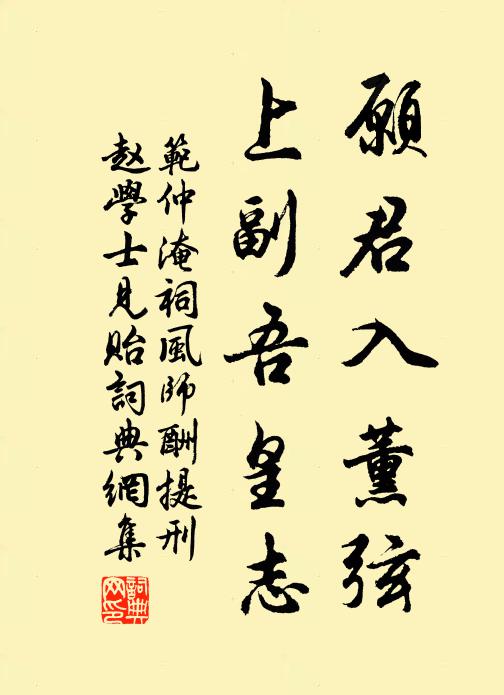 願君入薰弦
上副吾皇志
範仲淹祠風師酬提刑
赵學士見貽詞典網集
詞典网印